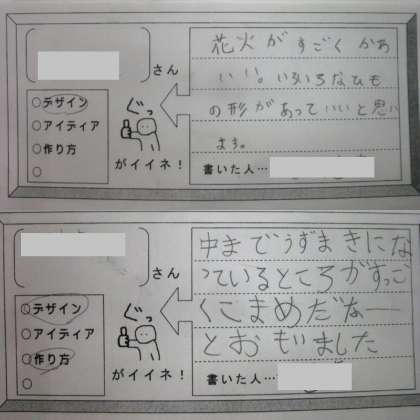 さん
○デザイン
○アイディア
○作り方
○
ぐっ
がイイネ！
花火がすごくかわ
いい。いろいろなひも
の形があっていいと思い
ます。
書いた人…
さん
○デザイン
○アイディア
○作り方
○
ぐっ
がイイネ！
中までうずまきにな
っているところがすっご
くこまめだなー
とおもいました
書いた人…